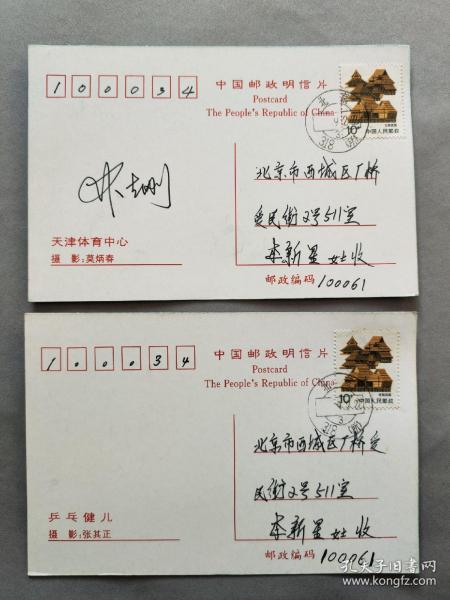 100034
中国邮政明信片
Postcard
The People's Republic of China
10分
中国人民邮政
北京市西城区厂桥
爱民街2号511室
李新星女士收
邮政编码 100061
天津体育中心
摄 影:莫炳春
100034
中国邮政明信片
Postcard
The People's Republic of China
10分
中国人民邮政
北京市西城区厂桥爱
民街2号511室
李新星女士收
邮政编码 100061
乒乓健儿
摄 影:张其正
孔夫子旧书网
www.kongfz.com